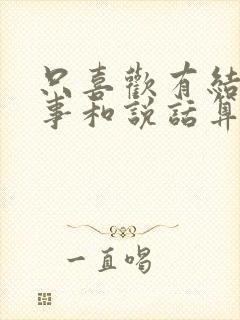 只喜歡有結
事和說話算
一直唱